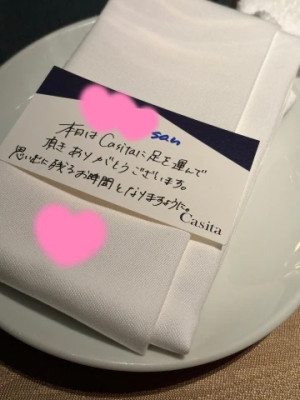 san
本日は Casitaに足を運んで
頂きありがとうございます。
思い出に残るお時間となりますように。
Casita